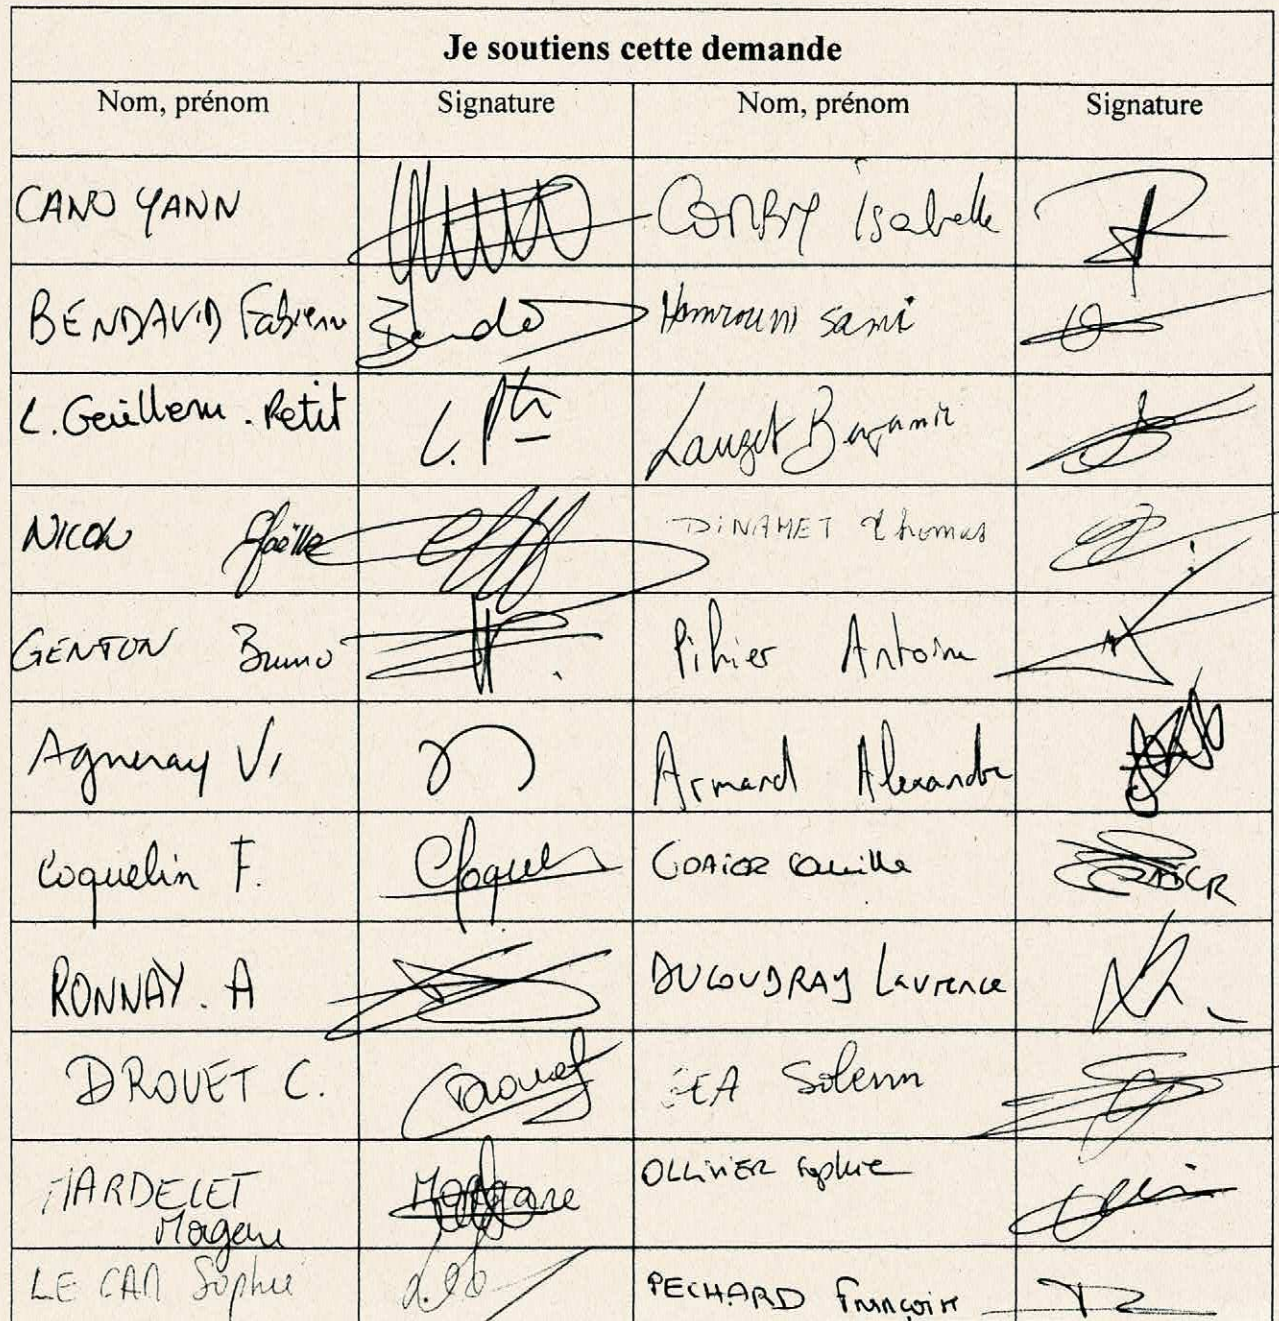 Je soutiens cette demande
Nom, prénom Signature Nom, prénom Signature
CANO YANN CORBY Isabelle
BENDAVID Fabienne Hamrouni Sami
L. Guillem. Petit L. Ptit Lauzet Benjamin
NICOL Gaëlle DINAMET Thomas
GENTON Bruno Pihier Antoine
Agneray V. Armand Alexandre
Coquelin F. Camille
RONNAY. A DUCOUDRAY Laurence
DROUET C. Drouet Solenn
MARDELET OLLIVIER Sophie
Morgane Morgane
LE CAM Sophie PECHARD Françoise